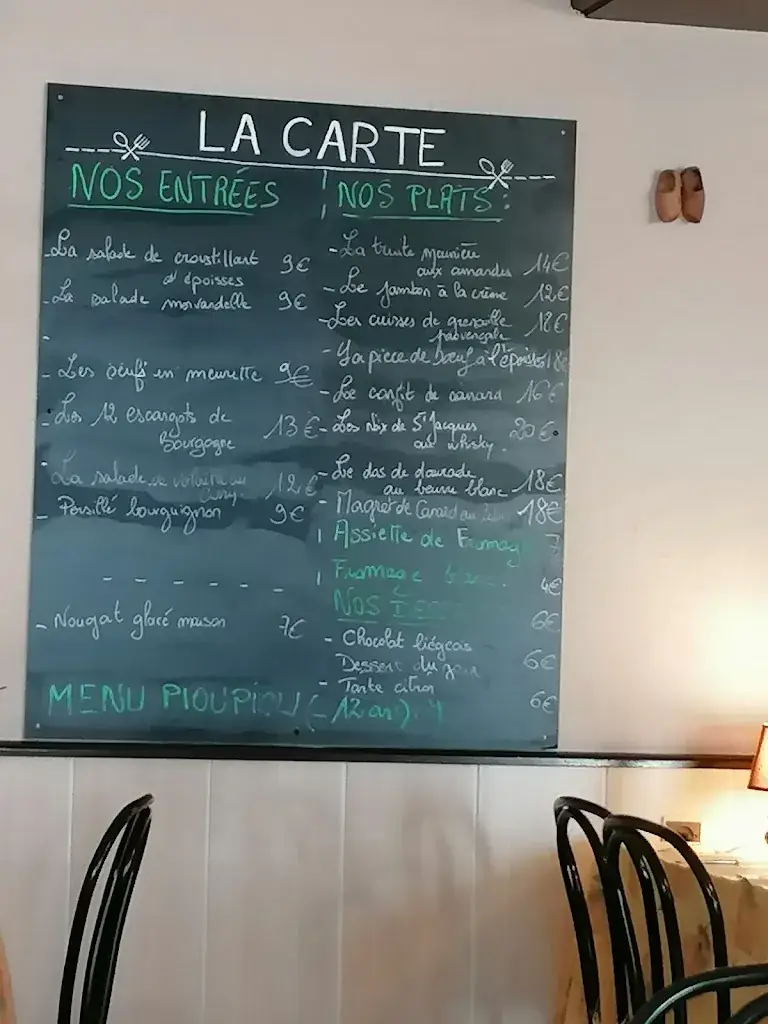 LA CARTE
NOS ENTRÉES
- La salade de croustillant 9€
d'époisses
- La salade morvandelle 9€
-
- Les œufs en meurette 9€
- Les 12 escargots de 13€
Bourgogne
- La salade de 12€
- Persillé bourguignon 9€
- - - - - -
- Nougat glacé maison 7€
NOS PLATS :
- La truite meunière
aux amandes 14€
- Le jambon à la crème 12€
- Les cuisses de grenouille 18€
provençale
- La pièce de bœuf à l'époisses 18€
- Le confit de canard 16€
- Les noix de St Jacques 20€
au whisky.
- Le dos de daurade
au beurre blanc 18€
- Magret de Canard au 18€
Assiette de Fromage 7
Fromage blanc. 4€
NOS 6€
- Chocolat liégeois
Dessert du jour 6€
- Tarte citron 6€
MENU PIOUPIOU (- 12 ans).